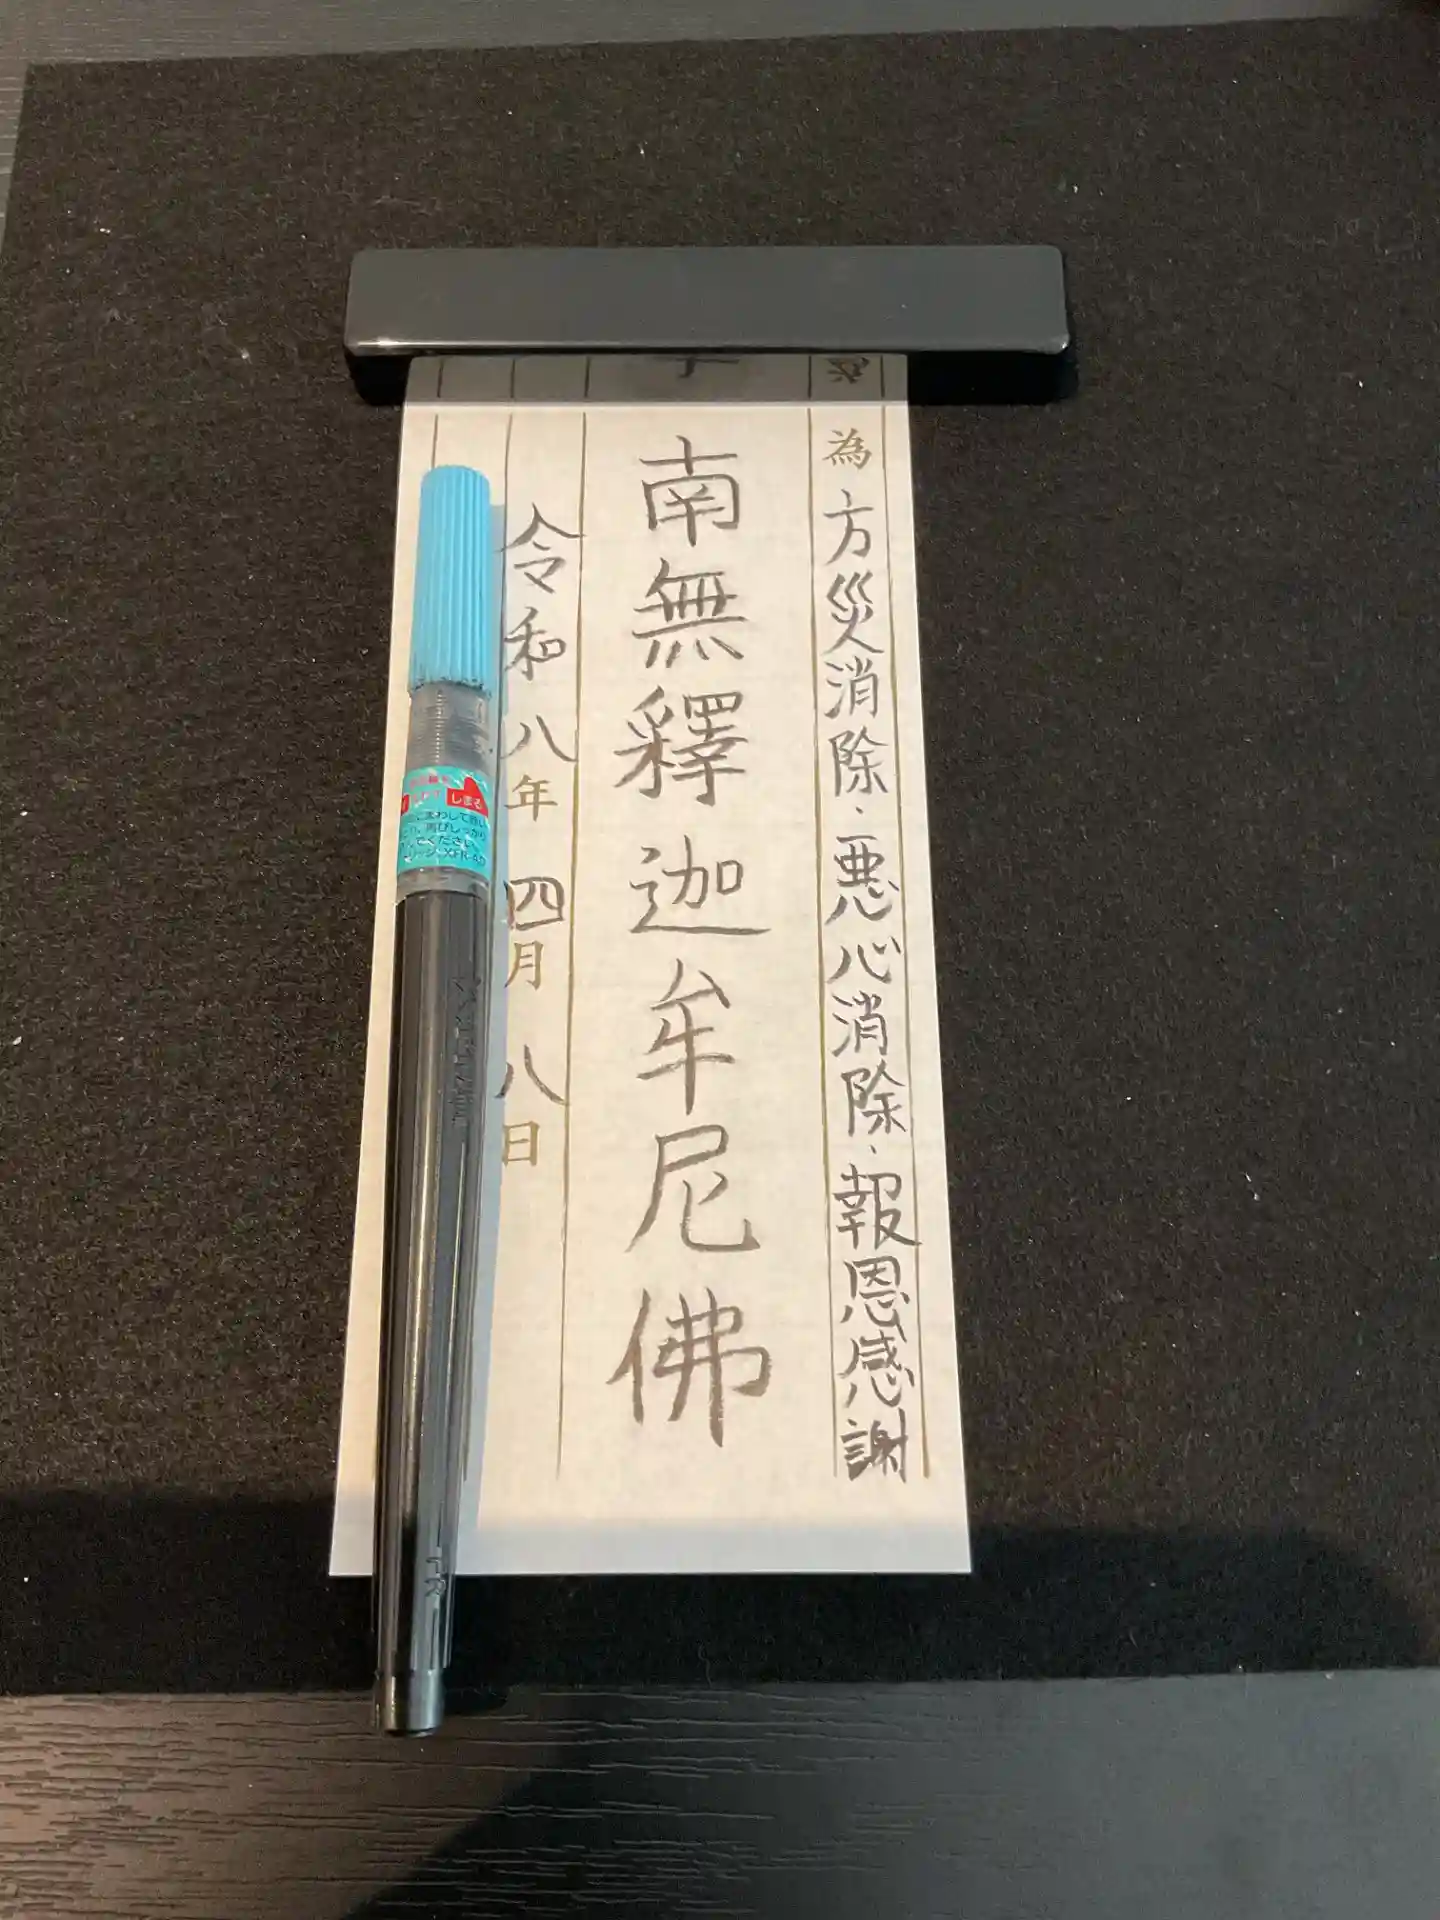 為 方災消除・悪心消除・報恩感謝
南無釋迦牟尼佛
令和八年四月八日
しまる